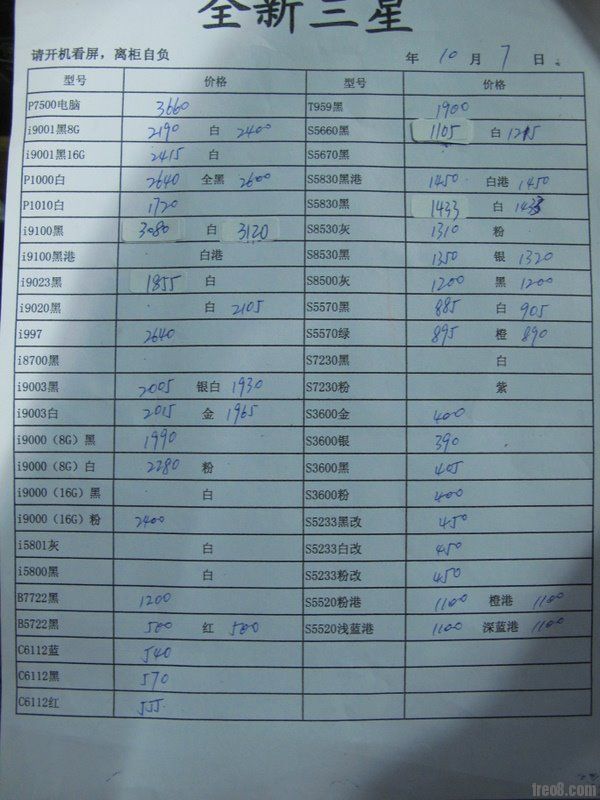 全新三星
请开机看屏，离柜自负 年 10 月 7 日
型号 价格 型号 价格
P7500电脑 3660 T959黑 1900
i9001黑8G 2190 白 2400 S5660黑 1105 白 1215
i9001黑16G 2415 白 S5670黑
P1000白 2640 全黑 2600 S5830黑港 1450 白港 1450
P1010白 1720 S5830黑 1433 白 1433
i9100黑 3080 白 3120 S8530灰 1310 粉
i9100黑港 白港 S8530黑 1350 银 1320
i9023黑 1855 白 S8500灰 1200 黑 1200
i9020黑 白 2105 S5570黑 885 白 905
i997 2640 S5570绿 895 橙 890
i8700黑 S7230黑 白
i9003黑 2005 银白 1930 S7230粉 紫
i9003白 2015 金 1965 S3600金 400
i9000（8G）黑 1990 S3600银 390
i9000（8G）白 2280 粉 S3600黑 405
i9000（16G）黑 白 S3600粉 400
i9000（16G）粉 2400 S5233黑改 450
i5801灰 白 S5233白改 450
i5800黑 白 S5233粉改 450
B7722黑 1200 S5520粉港 1100 橙港 1100
B5722黑 500 红 500 S5520浅蓝港 1100 深蓝港 1100
C6112蓝 540
C6112黑 570
C6112红 555
treo8.com